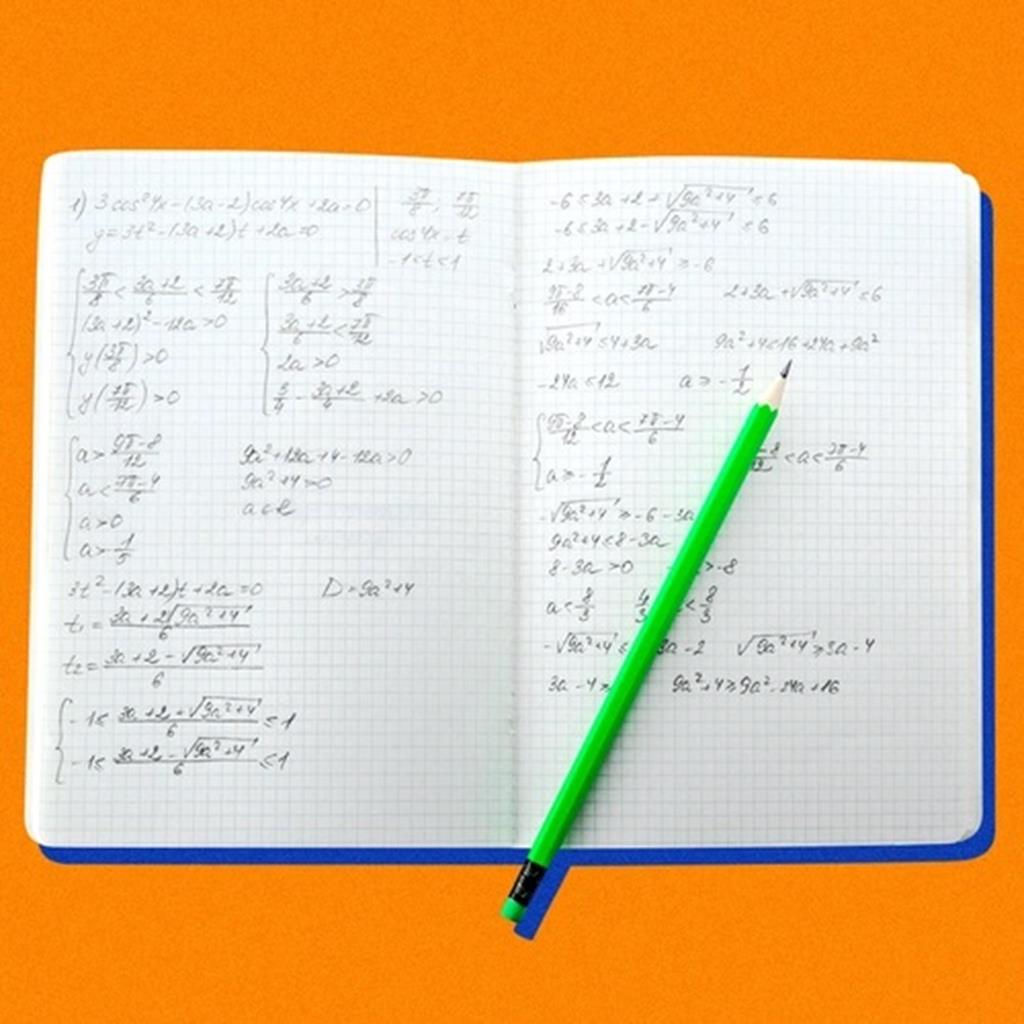 1) 3cos²4x-(3a-2)cos4x+2a=0 | 3π/8; 7π/12
y=3t²-(3a+2)t+2a=0 | cos4x=t
-1≤t≤1
3π/8 < (3a+2)/6 < 7π/12
(3a+2)²-12a>0
y(3π/8)>0
y(7π/12)>0
(3a+2)/6 > 3π/8
(3a+2)/6 < 7π/12
2a>0
3/4 - (3a+2)/4 +2a>0
a> (9π-8)/12
a< (7π-4)/6
a>0
a>-1/5
9a²+12a+4-12a>0
9a²+4>0
a∈R
3t²-(3a+2)t+2a=0 D=9a²+4
t₁= (3a+2+√(9a²+4))/6
t₂= (3a+2-√(9a²+4))/6
-1≤ (3a+2+√(9a²+4))/6 ≤1
-1≤ (3a+2-√(9a²+4))/6 ≤1
-6≤3a+2+√(9a²+4)≤6
-6≤3a+2-√(9a²+4)≤6
2+3a+√(9a²+4)≥-6
<a< (7π-4)/6 2+3a+√(9a²+4)≤6
√(9a²+4)≤4+3a 9a²+4≤16+24a+9a²
-24a≤12 a≥-1/2
(9π-8)/12 <a< (7π-4)/6
a≥-1/2
<a< (7π-4)/6
-√(9a²+4)≥-6-3a
9a²+4≤8-3a
8-3a>0 >-8
a< 8/3 < 8/3
-√(9a²+4)≤ 3a-2 √(9a²+4)≥3a-4
3a-4≥ 9a²+4≥9a²-24a+16